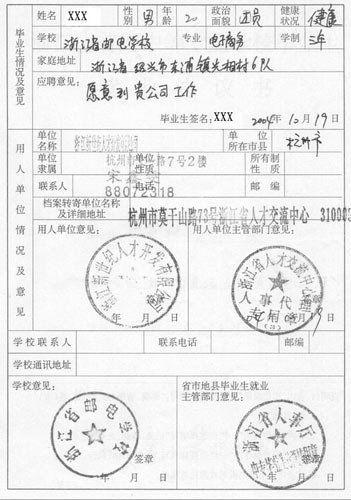 姓名 XXX 性别 男 年龄 20 政治面貌 团员 健康状况 健康
学校 浙江省邮电学校 专业 电子商务 学制 三年
家庭地址 浙江省绍兴市东浦镇光相村6队
应聘意见:
愿意到贵公司工作
毕业生签名: XXX 2004年10月19日
毕业生情况及意见
单位名称 单位所在市县 杭州市
单位隶属 杭州市 路7号2楼 所有制性质
联系人 宋 88072318 电话 邮编
档案转寄单位名称及详细地址 杭州市莫干山路73号浙江省人才交流中心 310005
用人单位意见: 用人单位主管部门意见:
浙江新世纪人才开发有限公司
浙江省人才交流中心 人事代理专用章
年 月 日 年 月 日
用人单位情况及意见
学校联系人 联系电话 邮编
学校通讯地址
学校意见: 省市地县毕业生就业主管部门意见:
浙江省邮电学校
浙江省人事厅
签章 签章
年 月 日 年 月 日